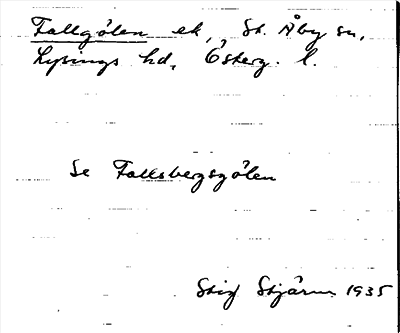 Fallgölen ek, St. Åby sn,
Lysings hd, Österg. l.
Se Falksbergsgölen
Stig Stjärn 1935